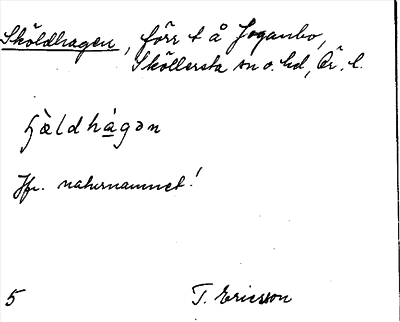 Sköldhagen, förr t å Joganbo,
Sköllersta sn o. hd, Ör. l.
ʃæ̀ldhàgən
Jfr. naturnamnet!
5 T. Ericsson